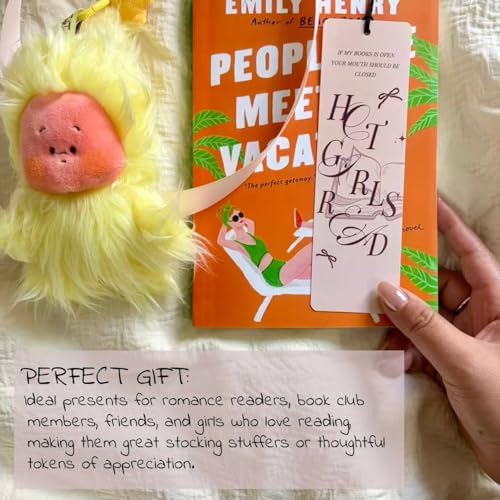 EMILY HENRY
Author of
PEOPL
MEET
VACA
"The perfect getaway.
novel
IF MY BOOKS IS OPEN
YOUR MOUTH SHOULD BE
CLOSED
HOT
GIRLS
READ
PERFECT GIFT:
Ideal presents for romance readers, book club
members, friends, and girls who love reading,
making them great stocking stuffers or thoughtful
tokens of appreciation.